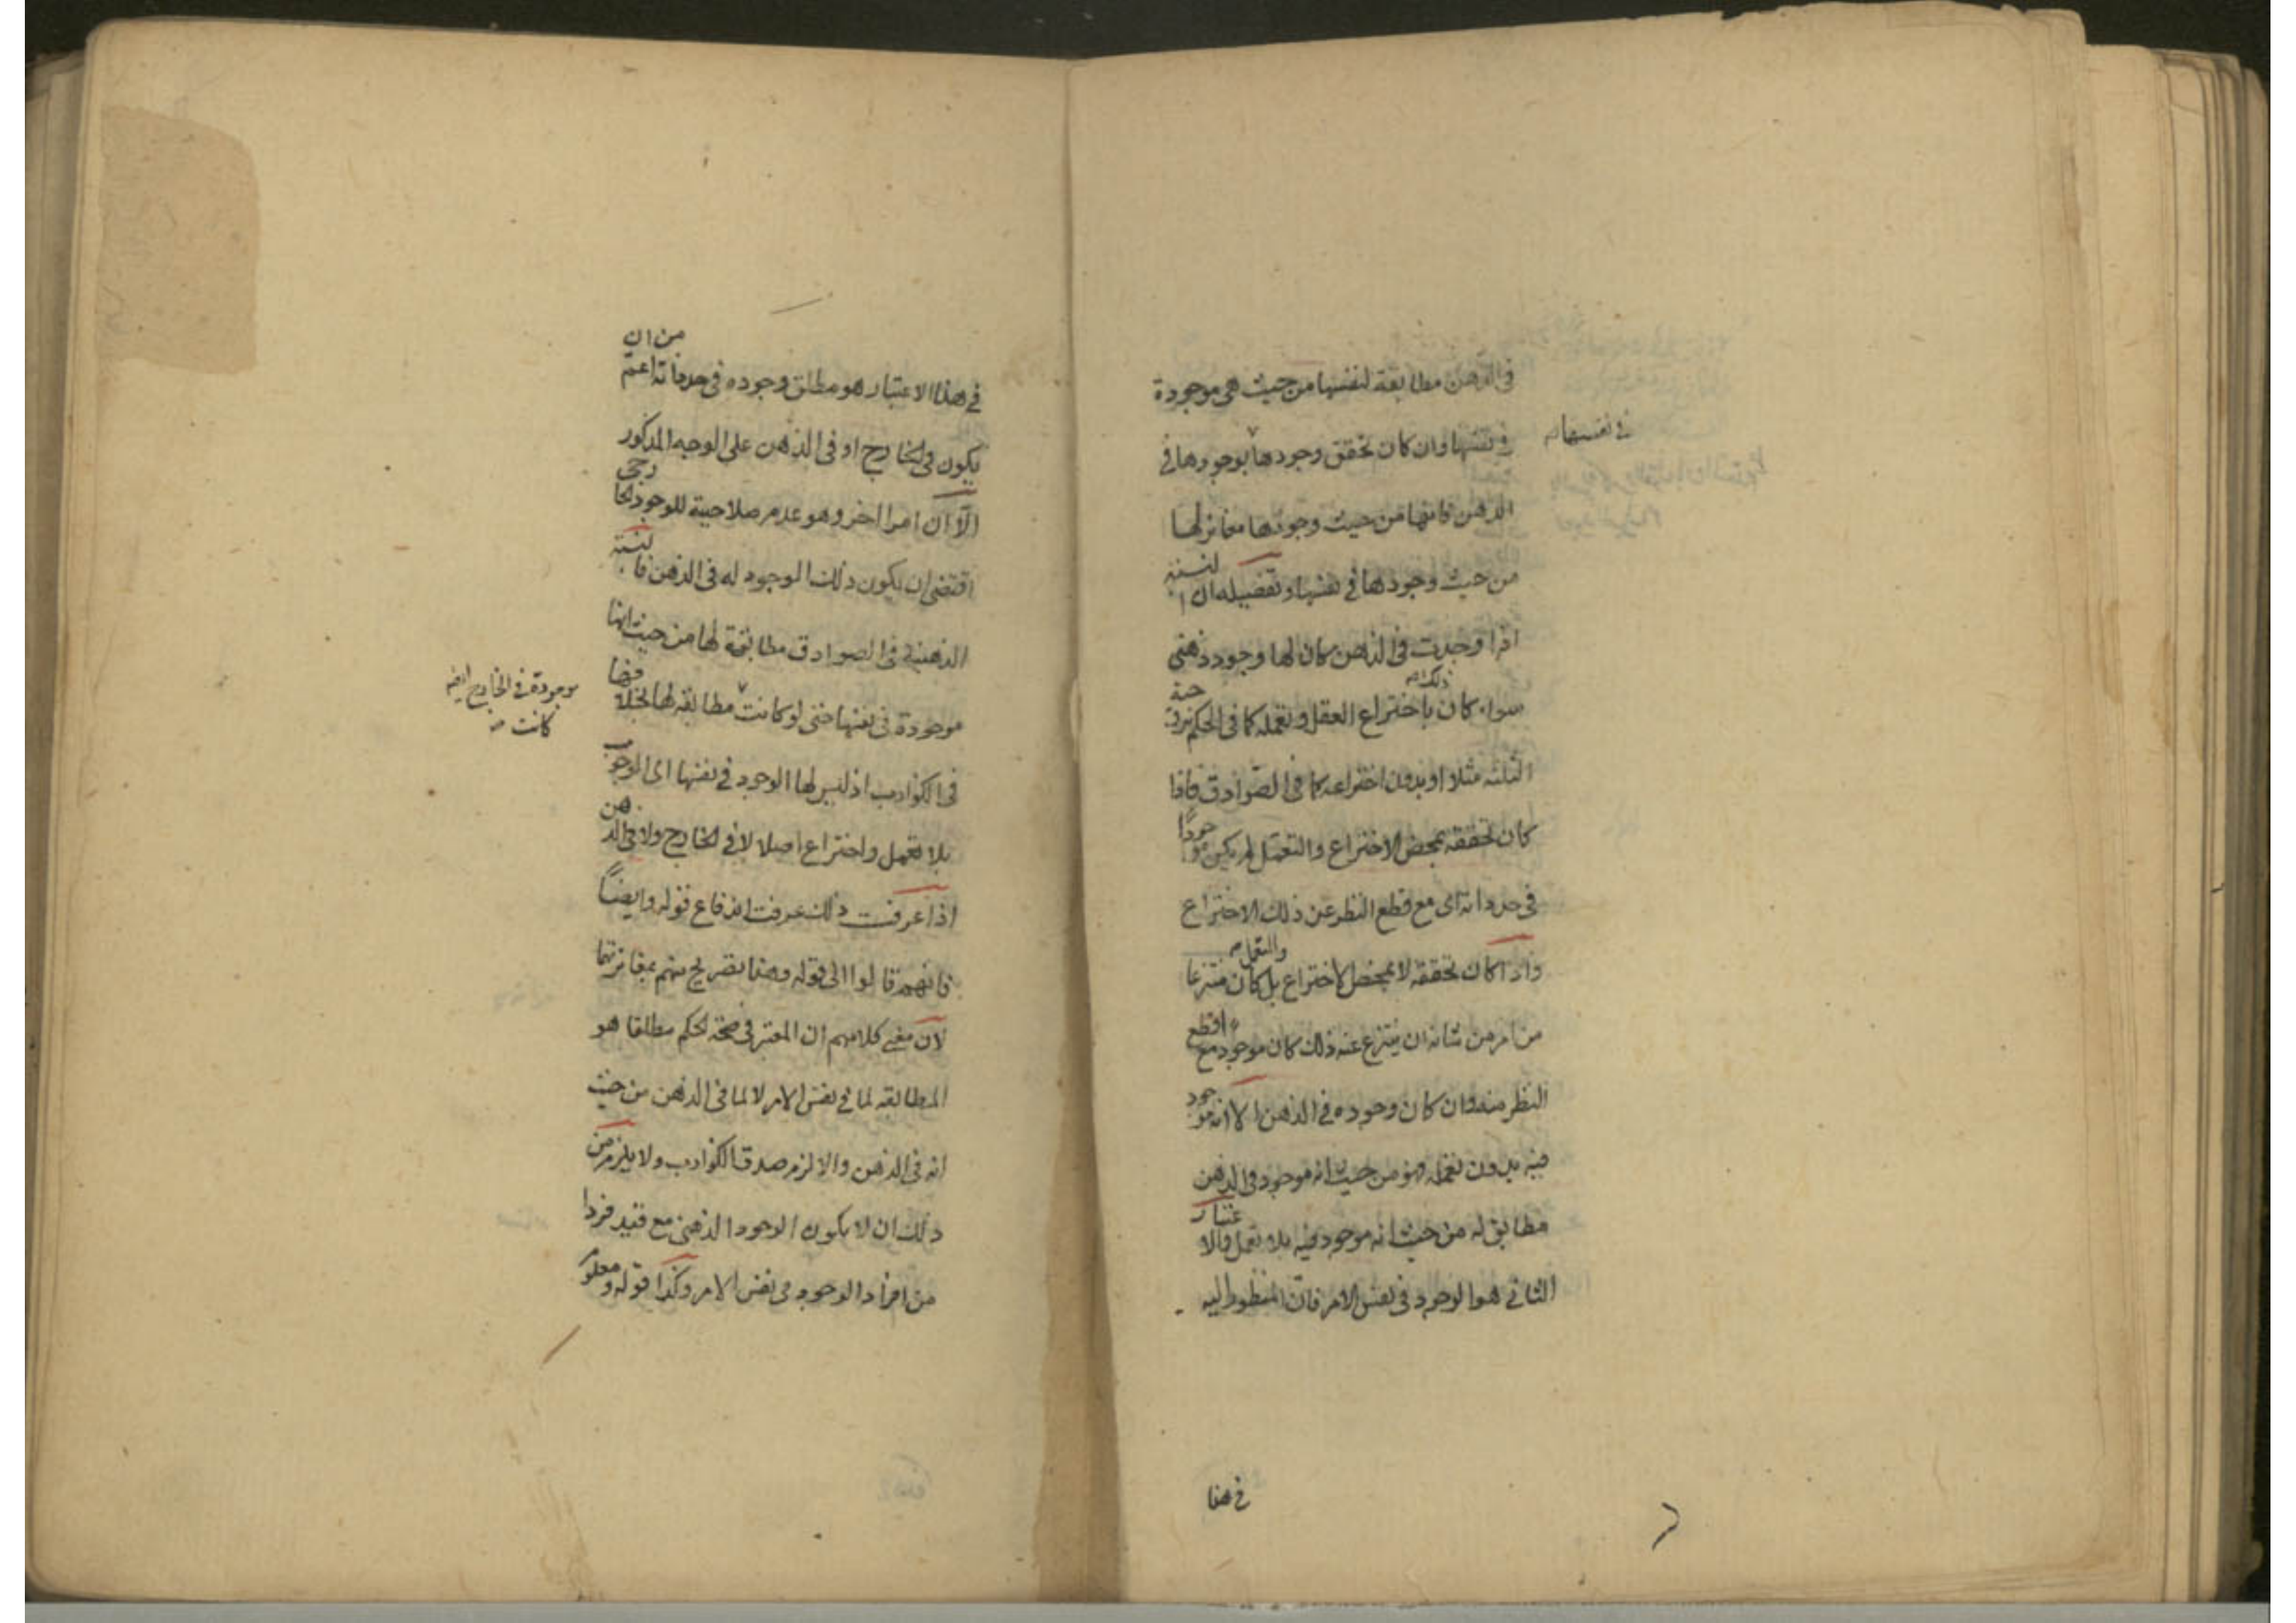 في الذهن مطابقة لنفسها من حيث هي موجودة
في نفسها وان كان تحقق وجودها بوجودها في
في نفسها
الذهن فانها من حيث وجودها مغاير لها
من حيث وجودها في نفسها وتفصيله ان النسبة
اذا وجدت في الذهن كان لها وجود ذهني
سواء كان ذلك باختراع العقل وتعمله كما في الحكم بزوجية
الثلثة مثلا او بدون اختراعه كما في الصوادق فاذا
كان تحققه بمحض الاختراع والتعمل لم يكن موجودًا
في حد ذاته اى مع قطع النظر عن ذلك الاختراع
والتعمل
واذا كان تحققه لا بمحض الاختراع بل كان منتزعا
من امر من شانه ان ينتزع عنه ذلك كان موجودا مع قطع
النظر عنه وان كان وجوده في الذهن الا انه موجود
فيه بدون تعمله فهو من حيث انه موجود في الذهن
مطابق له من حيث انه موجود فيه بلا تعمل والاعتبار
الثاني هو الوجود في نفس الامر فان المنظور اليه
في هذا
في هذا الاعتبار هو مطلق وجوده في حد ذاته اعم من ان
يكون في الخارج او في الذهن على الوجه المذكور
الا ان امرا اخر وهو عدم صلاحية للوجود الخارجي
اقتضى ان يكون ذلك الوجود له في الذهن فالنسبة
الذهنية في الصوادق مطابقة لها من حيث انها
موجودة في نفسها حتى لو كانت مطابقة لها بخلافها
موجودة في الخارج ايضا
كانت
في الكواذب اذ ليس لها الوجود في نفسها اى الوجود
بلا تعمل واختراع اصلا لا في الخارج ولا في الذهن
اذا عرفت ذلك عرفت اندفاع قوله وايضاً
فانهم قالوا الى قوله وهذا تصريح منهم بمغايرتهما
لان معنى كلامهم ان المعتبر في صحة الحكم مطلقا هو
المطابقة لما في نفس الامر لا لما في الذهن من حيث
انه في الذهن والا لزم صدق الكواذب ولا يلزم من
ذلك ان لا يكون الوجود الذهني مع قيد فردا
من افراد الوجود في نفس الامر وكذا قوله ومعلوم